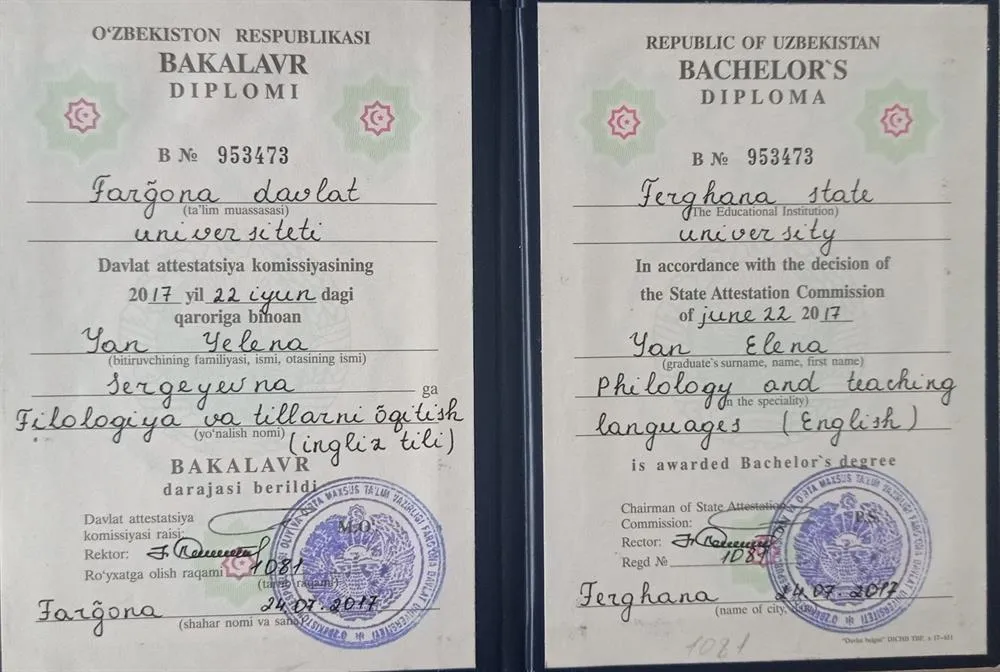 O‘ZBEKISTON RESPUBLIKASI
BAKALAVR
DIPLOMI
B № 953473
Farg̃ona davlat
(ta’lim muassasasi)
universiteti
Davlat attestatsiya komissiyasining
2017 yil 22 iyun dagi
qaroriga binoan
Yan Yelena
(bitiruvchining familiyasi, ismi, otasining ismi)
Sergeyevna ga
Filologiya va tillarni õqitish
(yo‘nalish nomi) (ingliz tili)
BAKALAVR
darajasi berildi
Davlat attestatsiya
komissiyasi raisi:
M.O‘.
Rektor:
Ro‘yxatga olish raqami 1081
(tartib raqami)
Farg̃ona 24.07.2017
(shahar nomi va sana)
REPUBLIC OF UZBEKISTAN
BACHELOR`S
DIPLOMA
B № 953473
Ferghana state
(The Educational Institution)
university
In accordance with the decision of
the State Attestation Commission
of june 22 2017
Yan Elena
(graduate`s surname, name, first name)
Philology and teaching
(in the speciality)
languages (English)
is awarded Bachelor`s degree
Chairman of State Attestation
Commission:
P.S.
Rector:
Regd № 1081
Ferghana 24.07.2017
(name of city,
1081